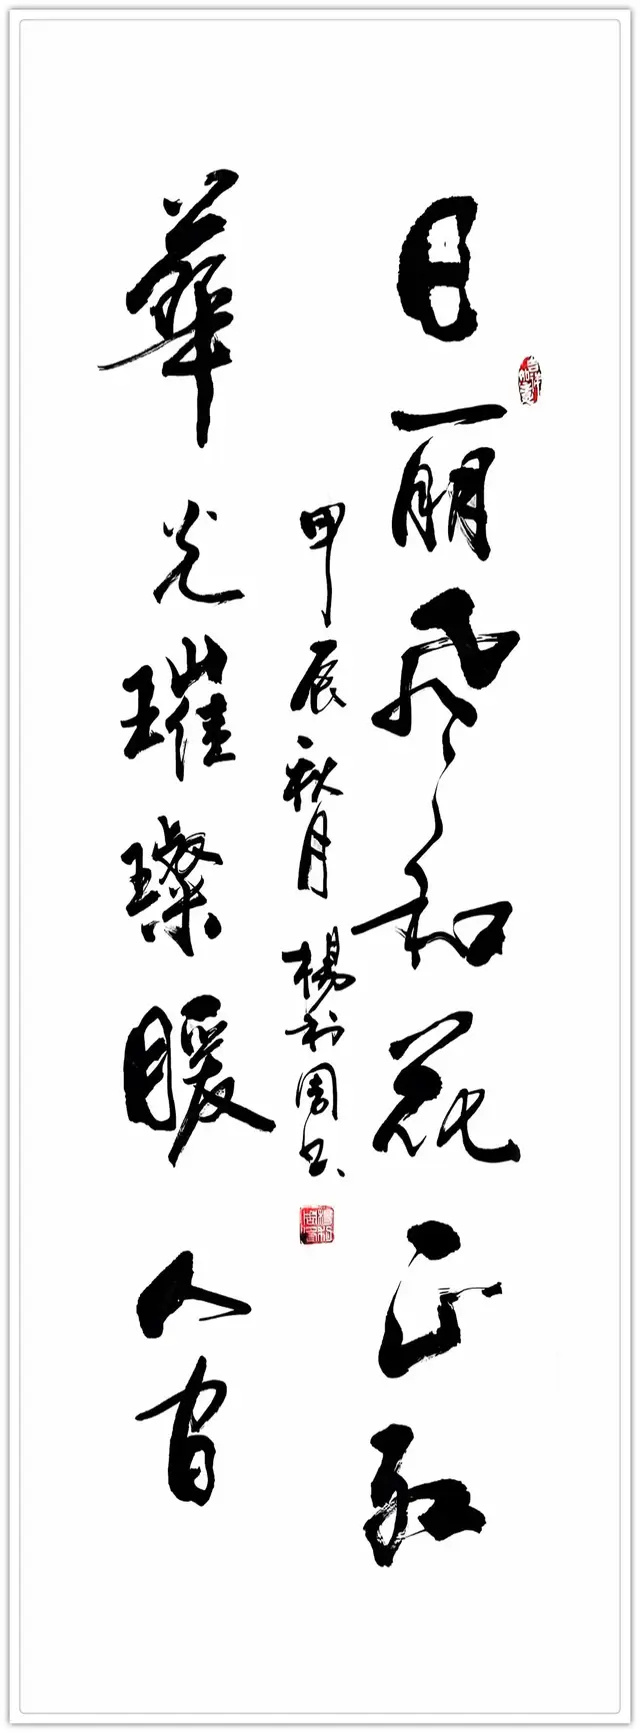 日丽风和花正红
華光璀璨暖人间
甲辰秋月楊利周书